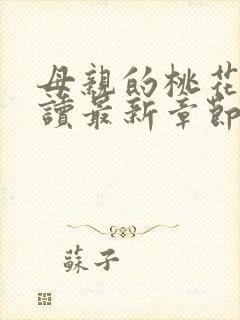 母親的桃花
讀最新章節
蘇子